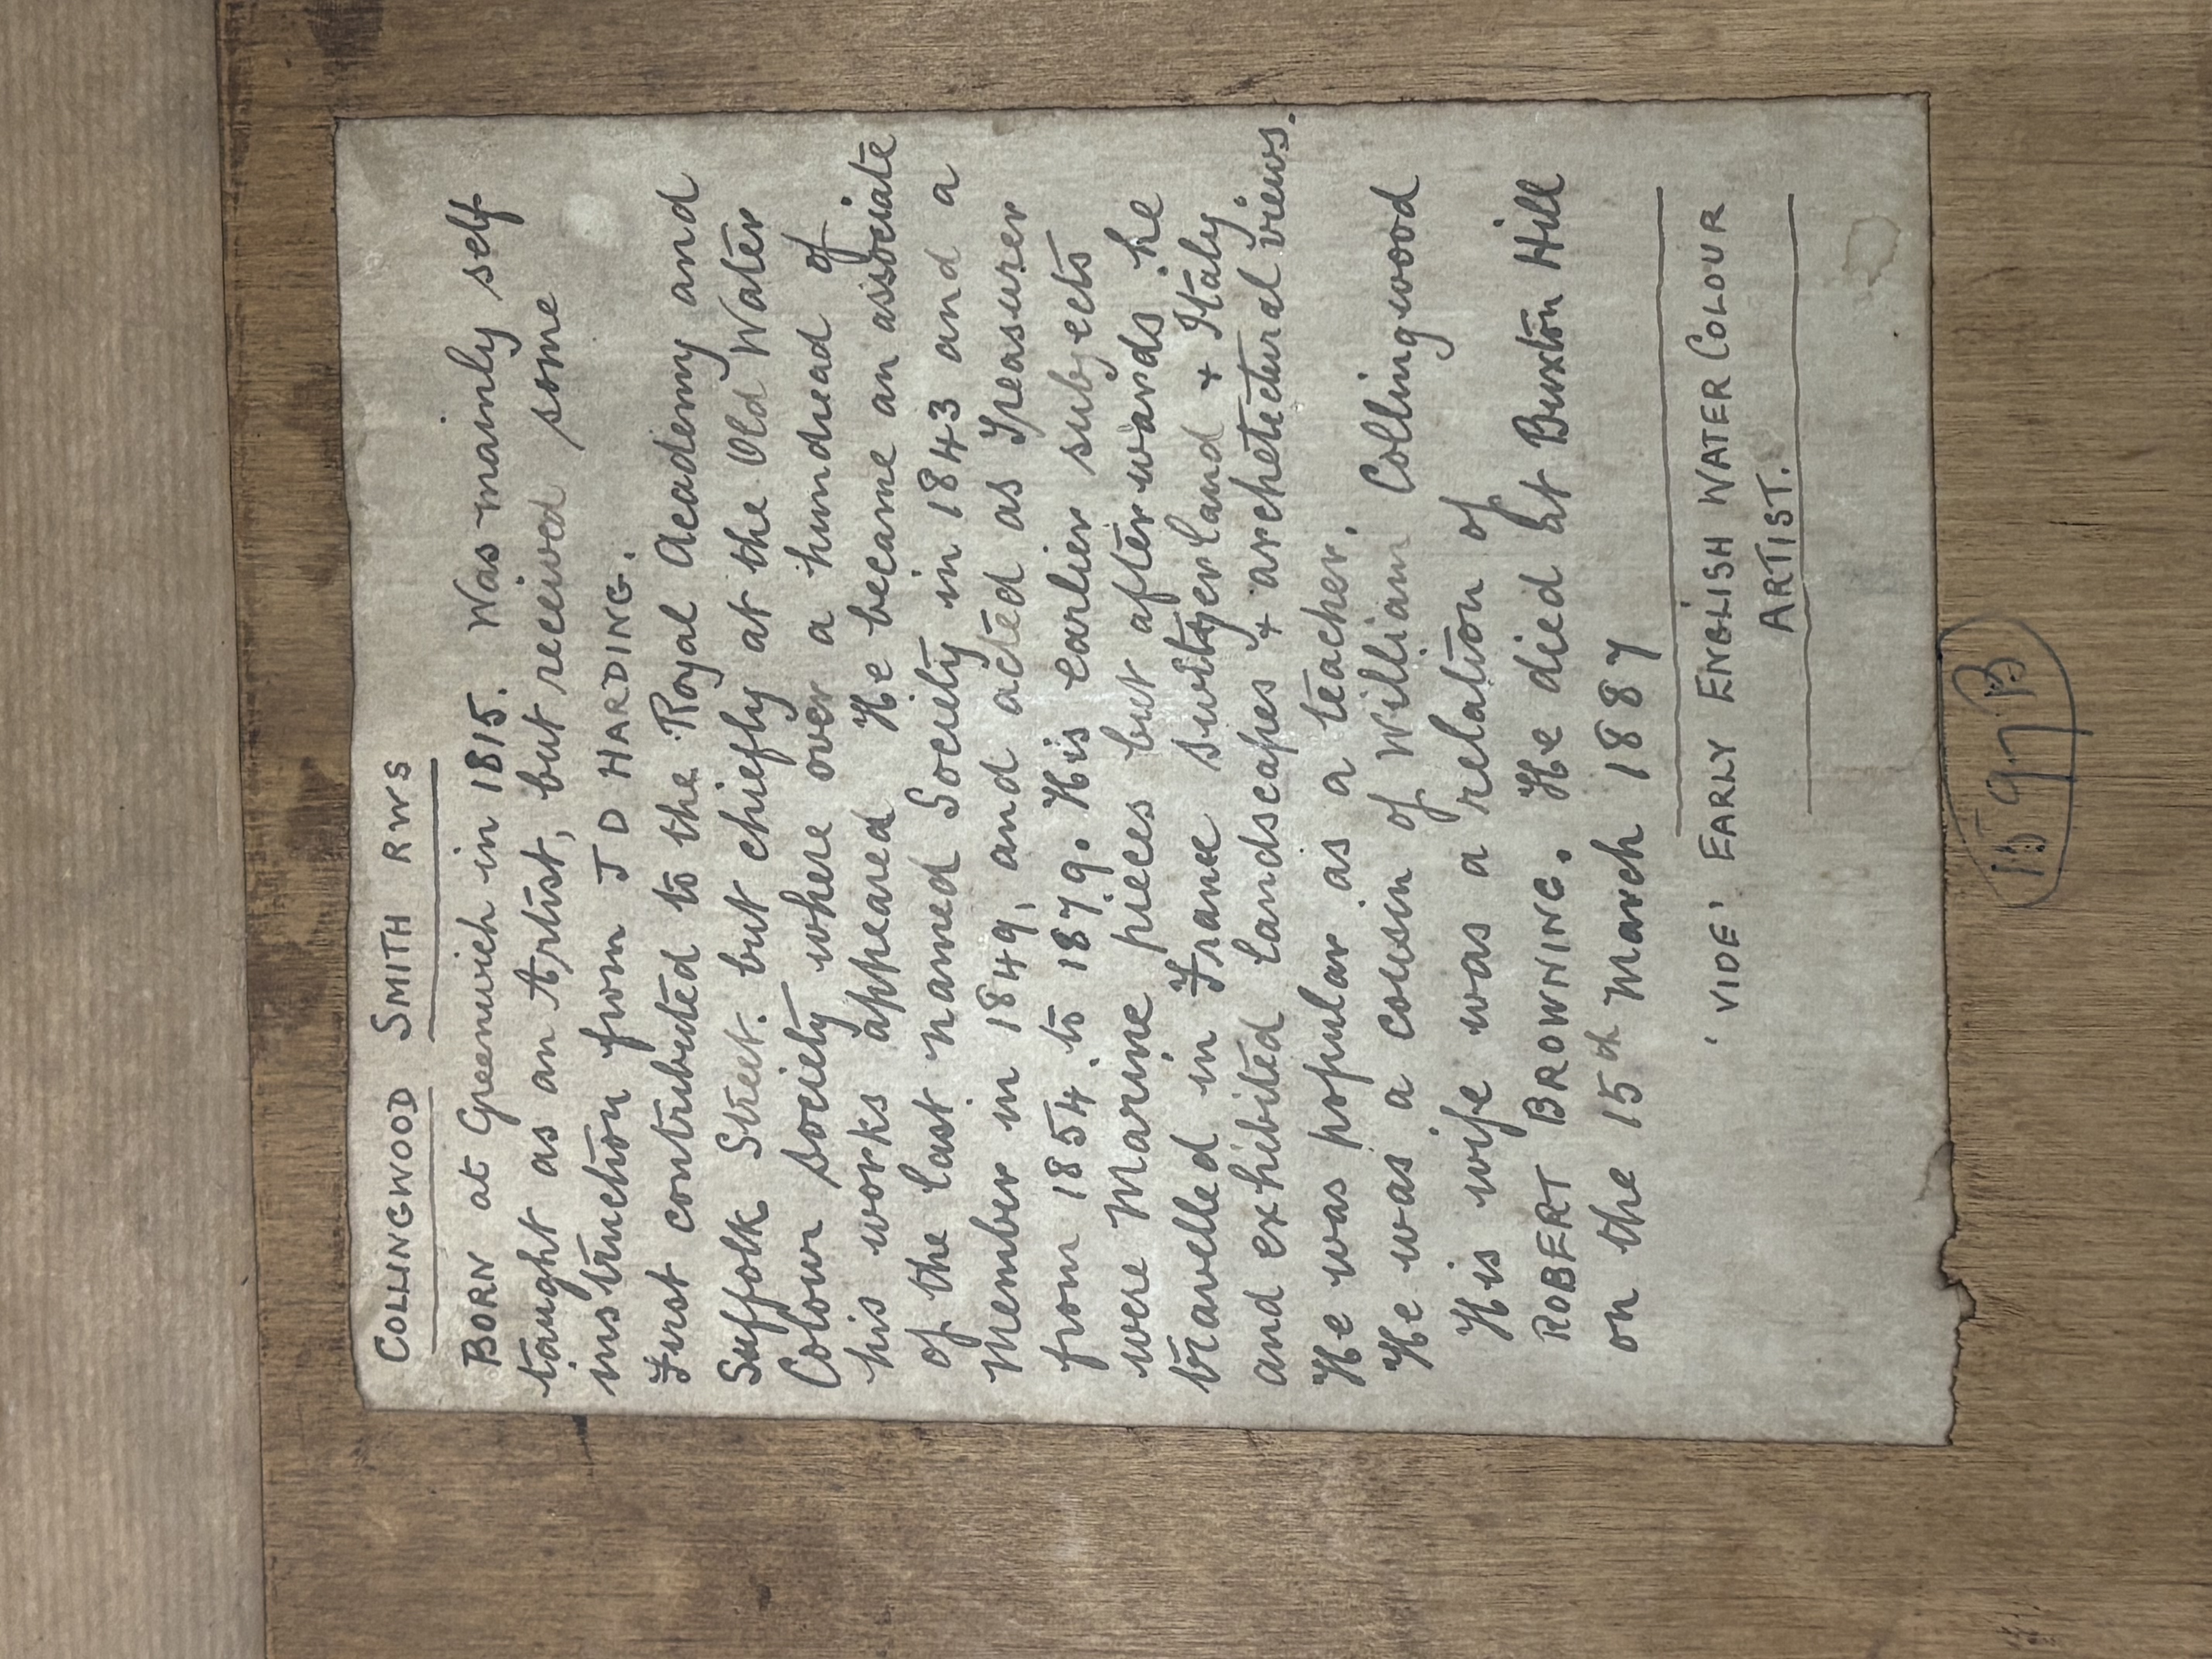 COLLINGWOOD SMITH RWS
BORN at Greenwich in 1815. Was mainly self
taught as an Artist, but received some
instruction from J D HARDING.
First contributed to the Royal Academy and
Suffolk Street. but chiefly at the Old Water
Colour Society where over a hundread of
his works appeared He became an associate
of the last named Society in 1843 and a
Member in 1849, and acted as Treasurer
from 1854 to 1879. His earlier subjects
were Marine pieces but afterwards he
travelled in France switzerland + Italy.
and exhibited landscapes + archetectural views.
He was popular as a teacher.
He was a cousin of William Collingwood
His wife was a relation of
ROBERT BROWNING. He died at Buxton Hill
on the 15th March 1887
'VIDE' EARLY ENGLISH WATER COLOUR
ARTIST.
1597B